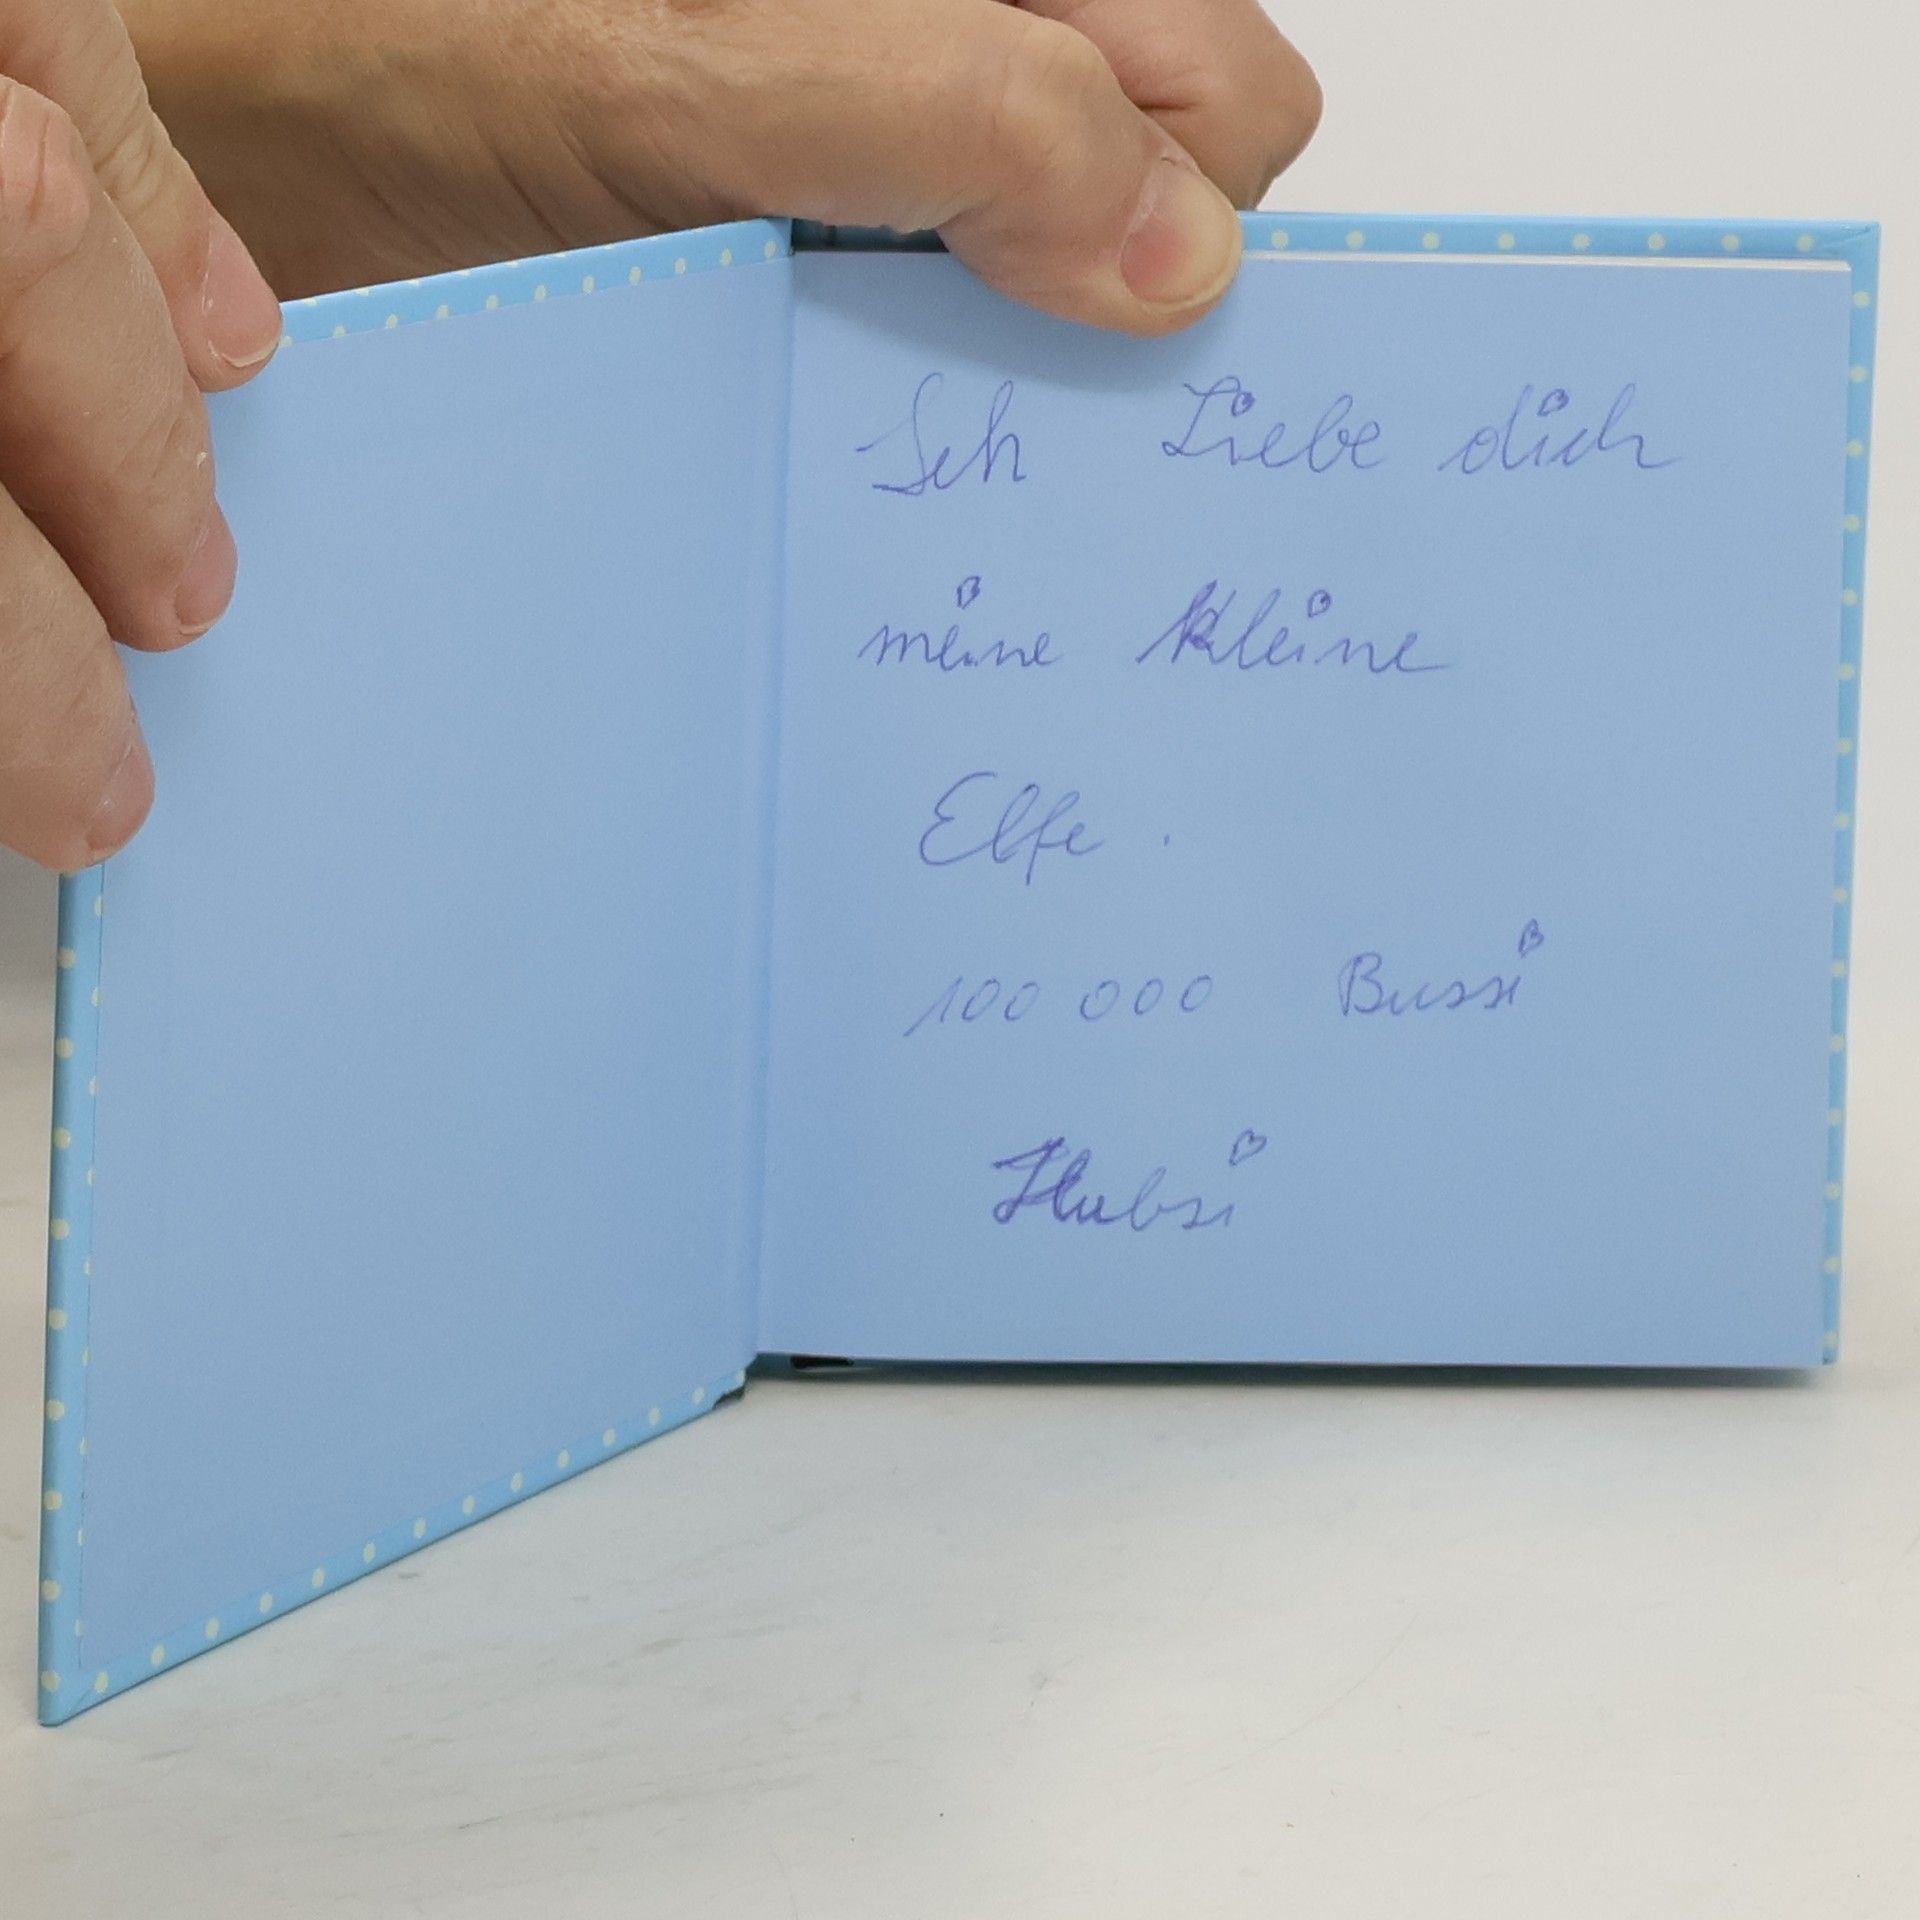 Ich Liebe dich
meine kleine
Elfe.
100 000 Bussi
Hubsi